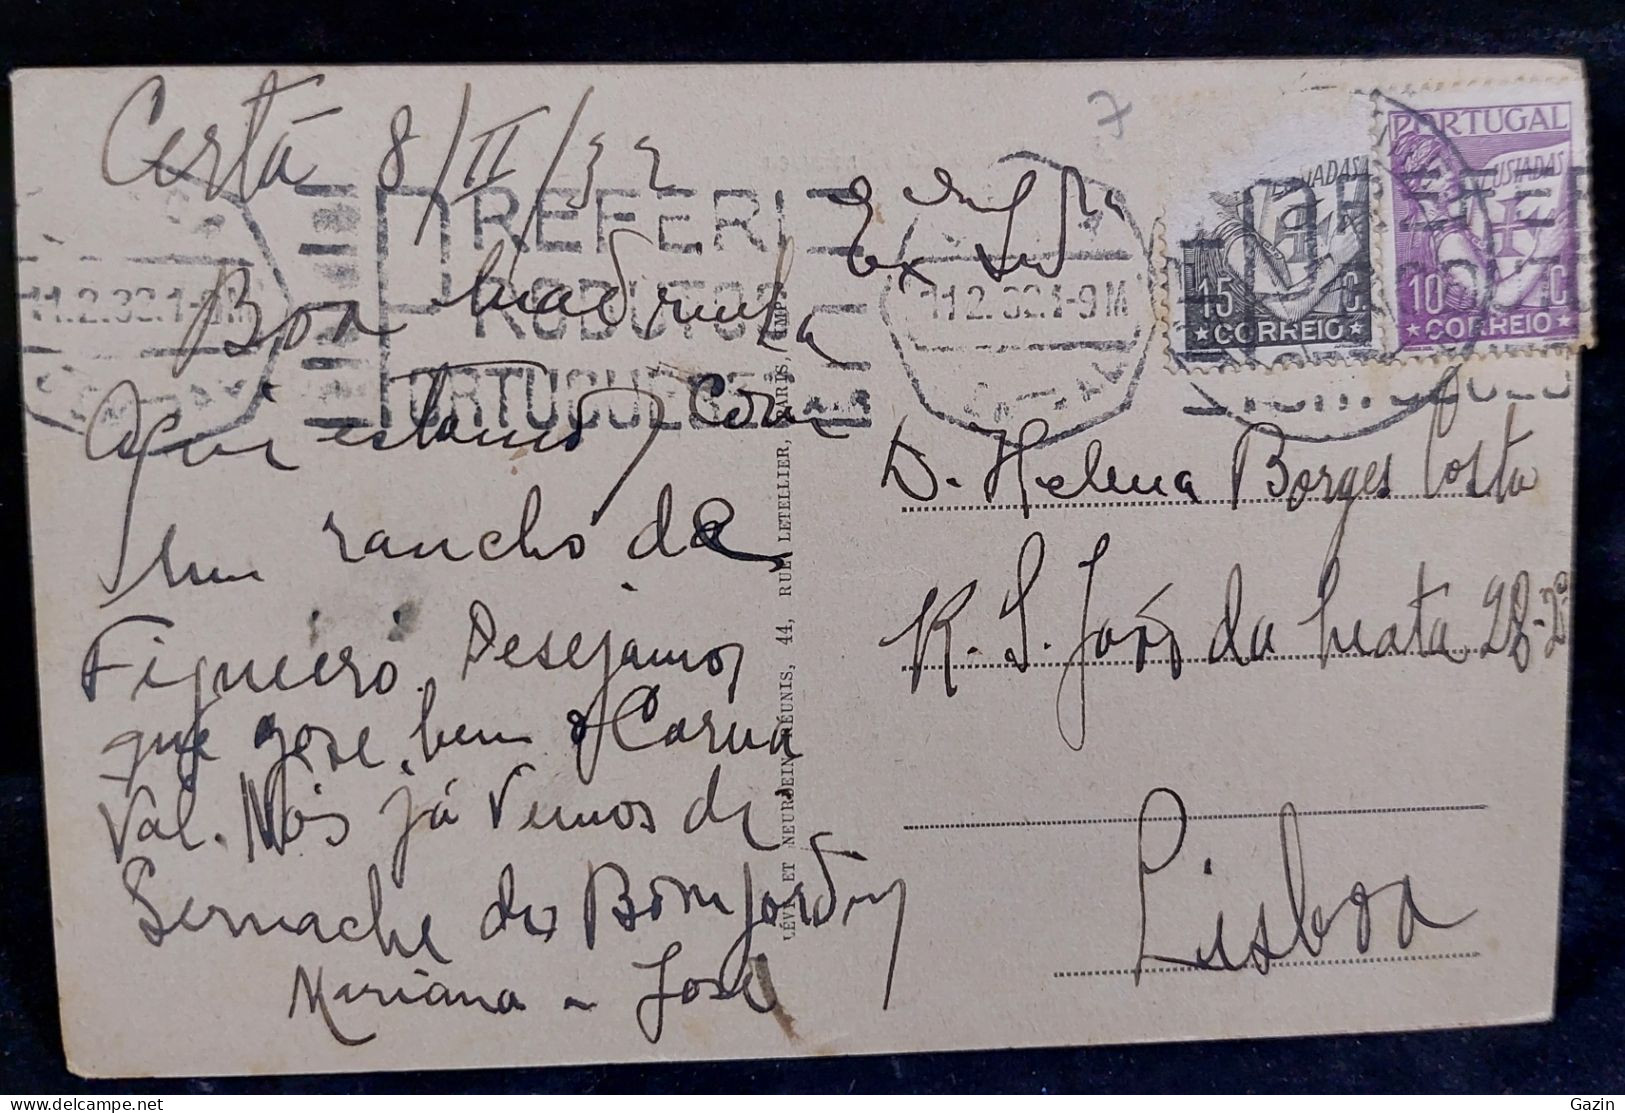 Certã 8/II/32
Boa Madrinha
Aqui estamos com
um rancho de
Figueiró. Desejamos
que goze bem o Carna
val. Nós já vimos de
Sernache do Bomjardim
Mariana - José
7
D. Helena Borges Costa
R. S. José da Mata 28-2º
Lisboa
LÉVY ET NEURDEIN RÉUNIS, 44, RUE LETELLIER, PARIS, IMP.
11.2.32.1-9M
PREFERI
PRODUTOS
PORTUGUESES
11.2.32.1-9M
LUSIADAS
15 C.
CORREIO
PORTUGAL
LUSIADAS
10 C.
CORREIO
Gazin